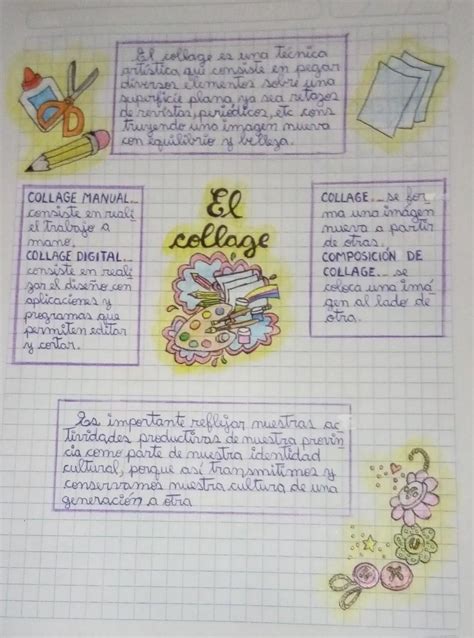 El collage es una técnica
artística que consiste en pegar
diversos elementos sobre una
superficie plana, ya sea retazos
de revistas, periódicos, etc cons
truyendo una imagen nueva
con equilibrio y belleza.
El
collage
COLLAGE MANUAL._
consiste en reali
el trabajo a
mano.
COLLAGE DIGITAL._
consiste en reali
zar el diseño con
aplicaciones y
programas que
permiten editar
y cortar.
COLLAGE._ se for
ma una imágen
nueva a partir
de otras.
COMPOSICIÓN DE
COLLAGE._ se
coloca una imá
gen al lado de
otra.
Es importante reflejar nuestras ac
tividades productivas de nuestra provin
cia como parte de nuestra identidad
cultural, porque así transmitimos y
conservamos nuestra cultura de una
generación a otra